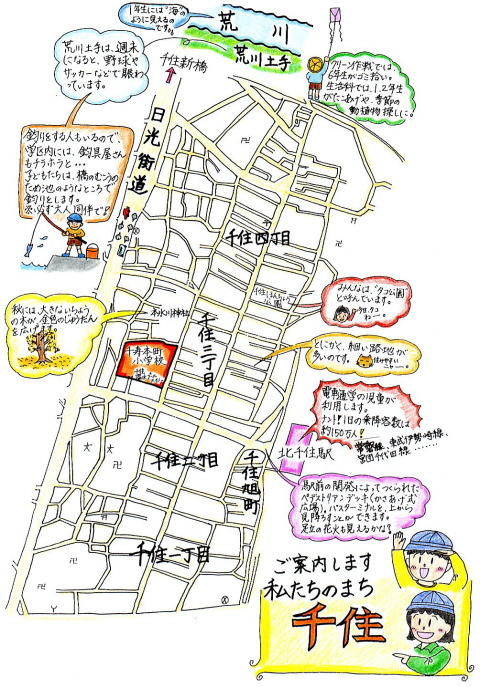 1年生には"海"の
ように見えるの
です。
荒川
荒川土手
千住新橋
荒川土手は、週末
になると、野球や
サッカーなどで賑わ
っています。
クリーン作戦では、
6年生がゴミ拾い。
生活科では、1、2年生
がたこあげや、季節の
動植物探しに。
日光街道
釣りをする人もいるので、
学区内には、釣具屋さん
もチラホラと…
子どもたちは、橋のむこうの
ため池のようなところで
釣りをします。
※必ず大人同伴で!
千住四丁目
みんなは、"タコ公園"
と呼んでいます。
公園
秋には、大きないちょう
の木が、金色のじゅうたん
を広げます。
氷川神社
千住三丁目
千寿本町
小学校
とにかく、細い路地が
多いのです。
電車通学の児童が
利用します。
ナント!1日の乗降客数は
約150万人!
常磐線、東武伊勢崎線、
営団千代田線……
北千住駅
千住二丁目
千住旭町
駅前の開発によってつくられた
ペデストリアンデッキ(かさあげ式
広場)。バスターミナルを、上から
見降ろすことができます。
足立の花火も見えるかな?
千住一丁目
ご案内します
私たちのまち
千住